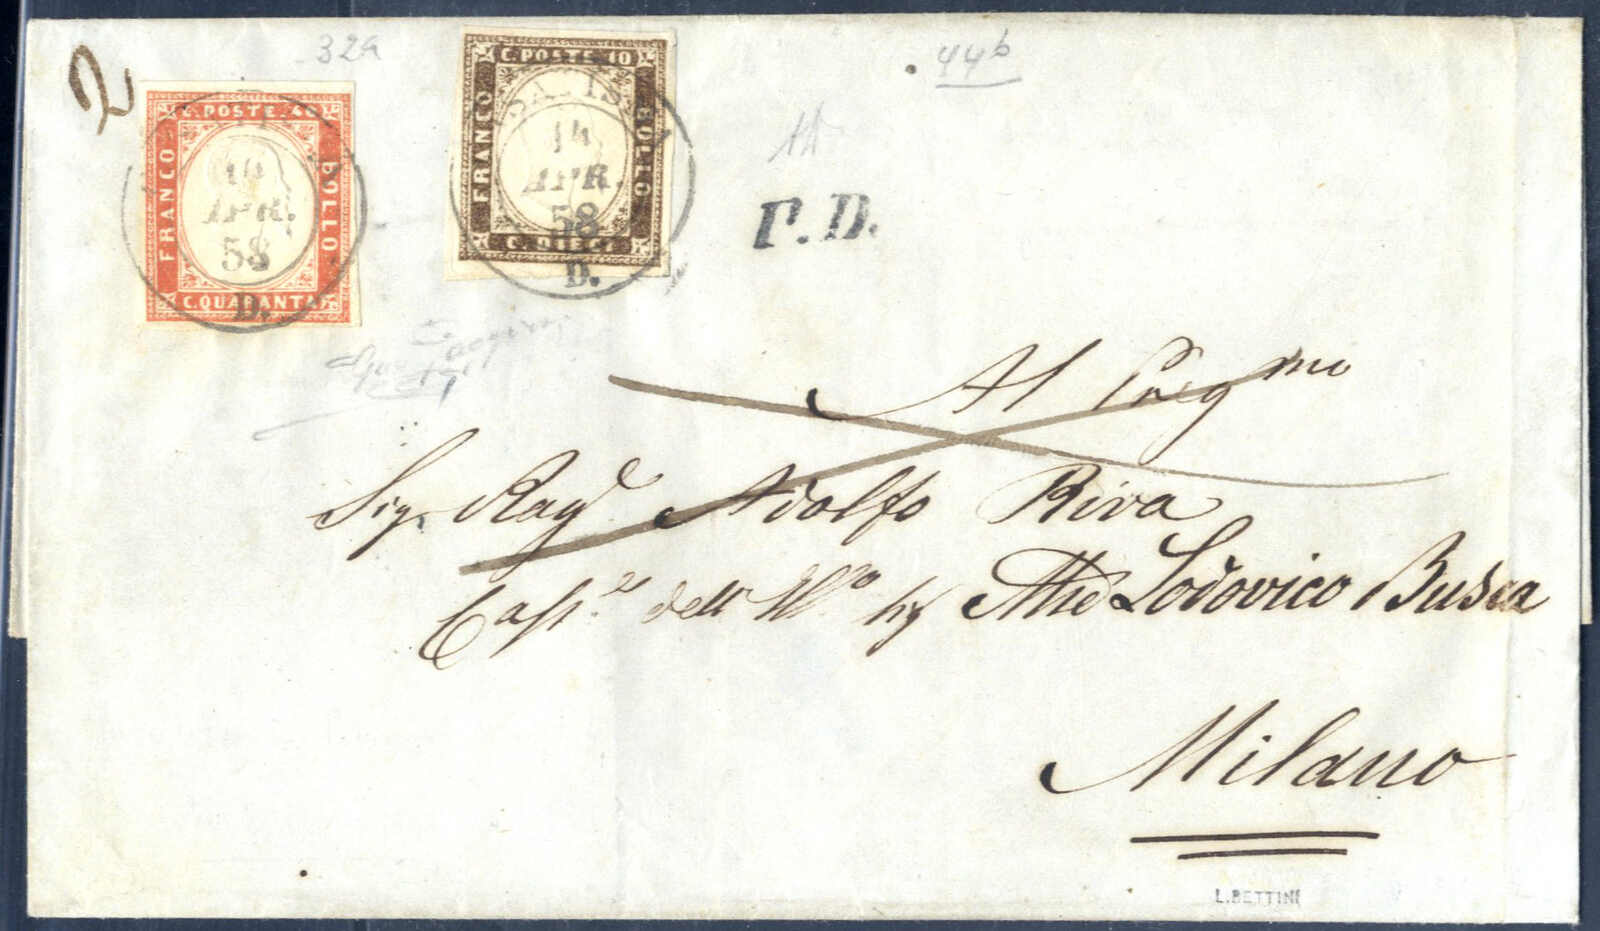 32a
44b
2
C. POSTE 40
FRANCO
BOLLO
C. QUARANTA
14
APR.
58
D.
C. POSTE 10
FRANCO
BOLLO
C. DIECI
14
APR.
58
D.
P.D.
Al Preg.mo
Sig. Rag. Adolfo Riva
dell' Lodovico Busca
Milano
L. BETTINI